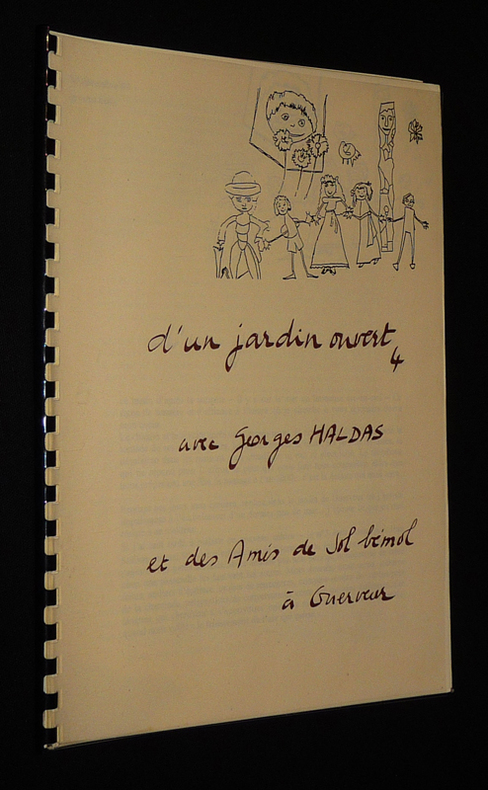 d'un jardin ouvert
4
avec Georges HALDAS
et des Amis de Sol bémol
à Guerveur